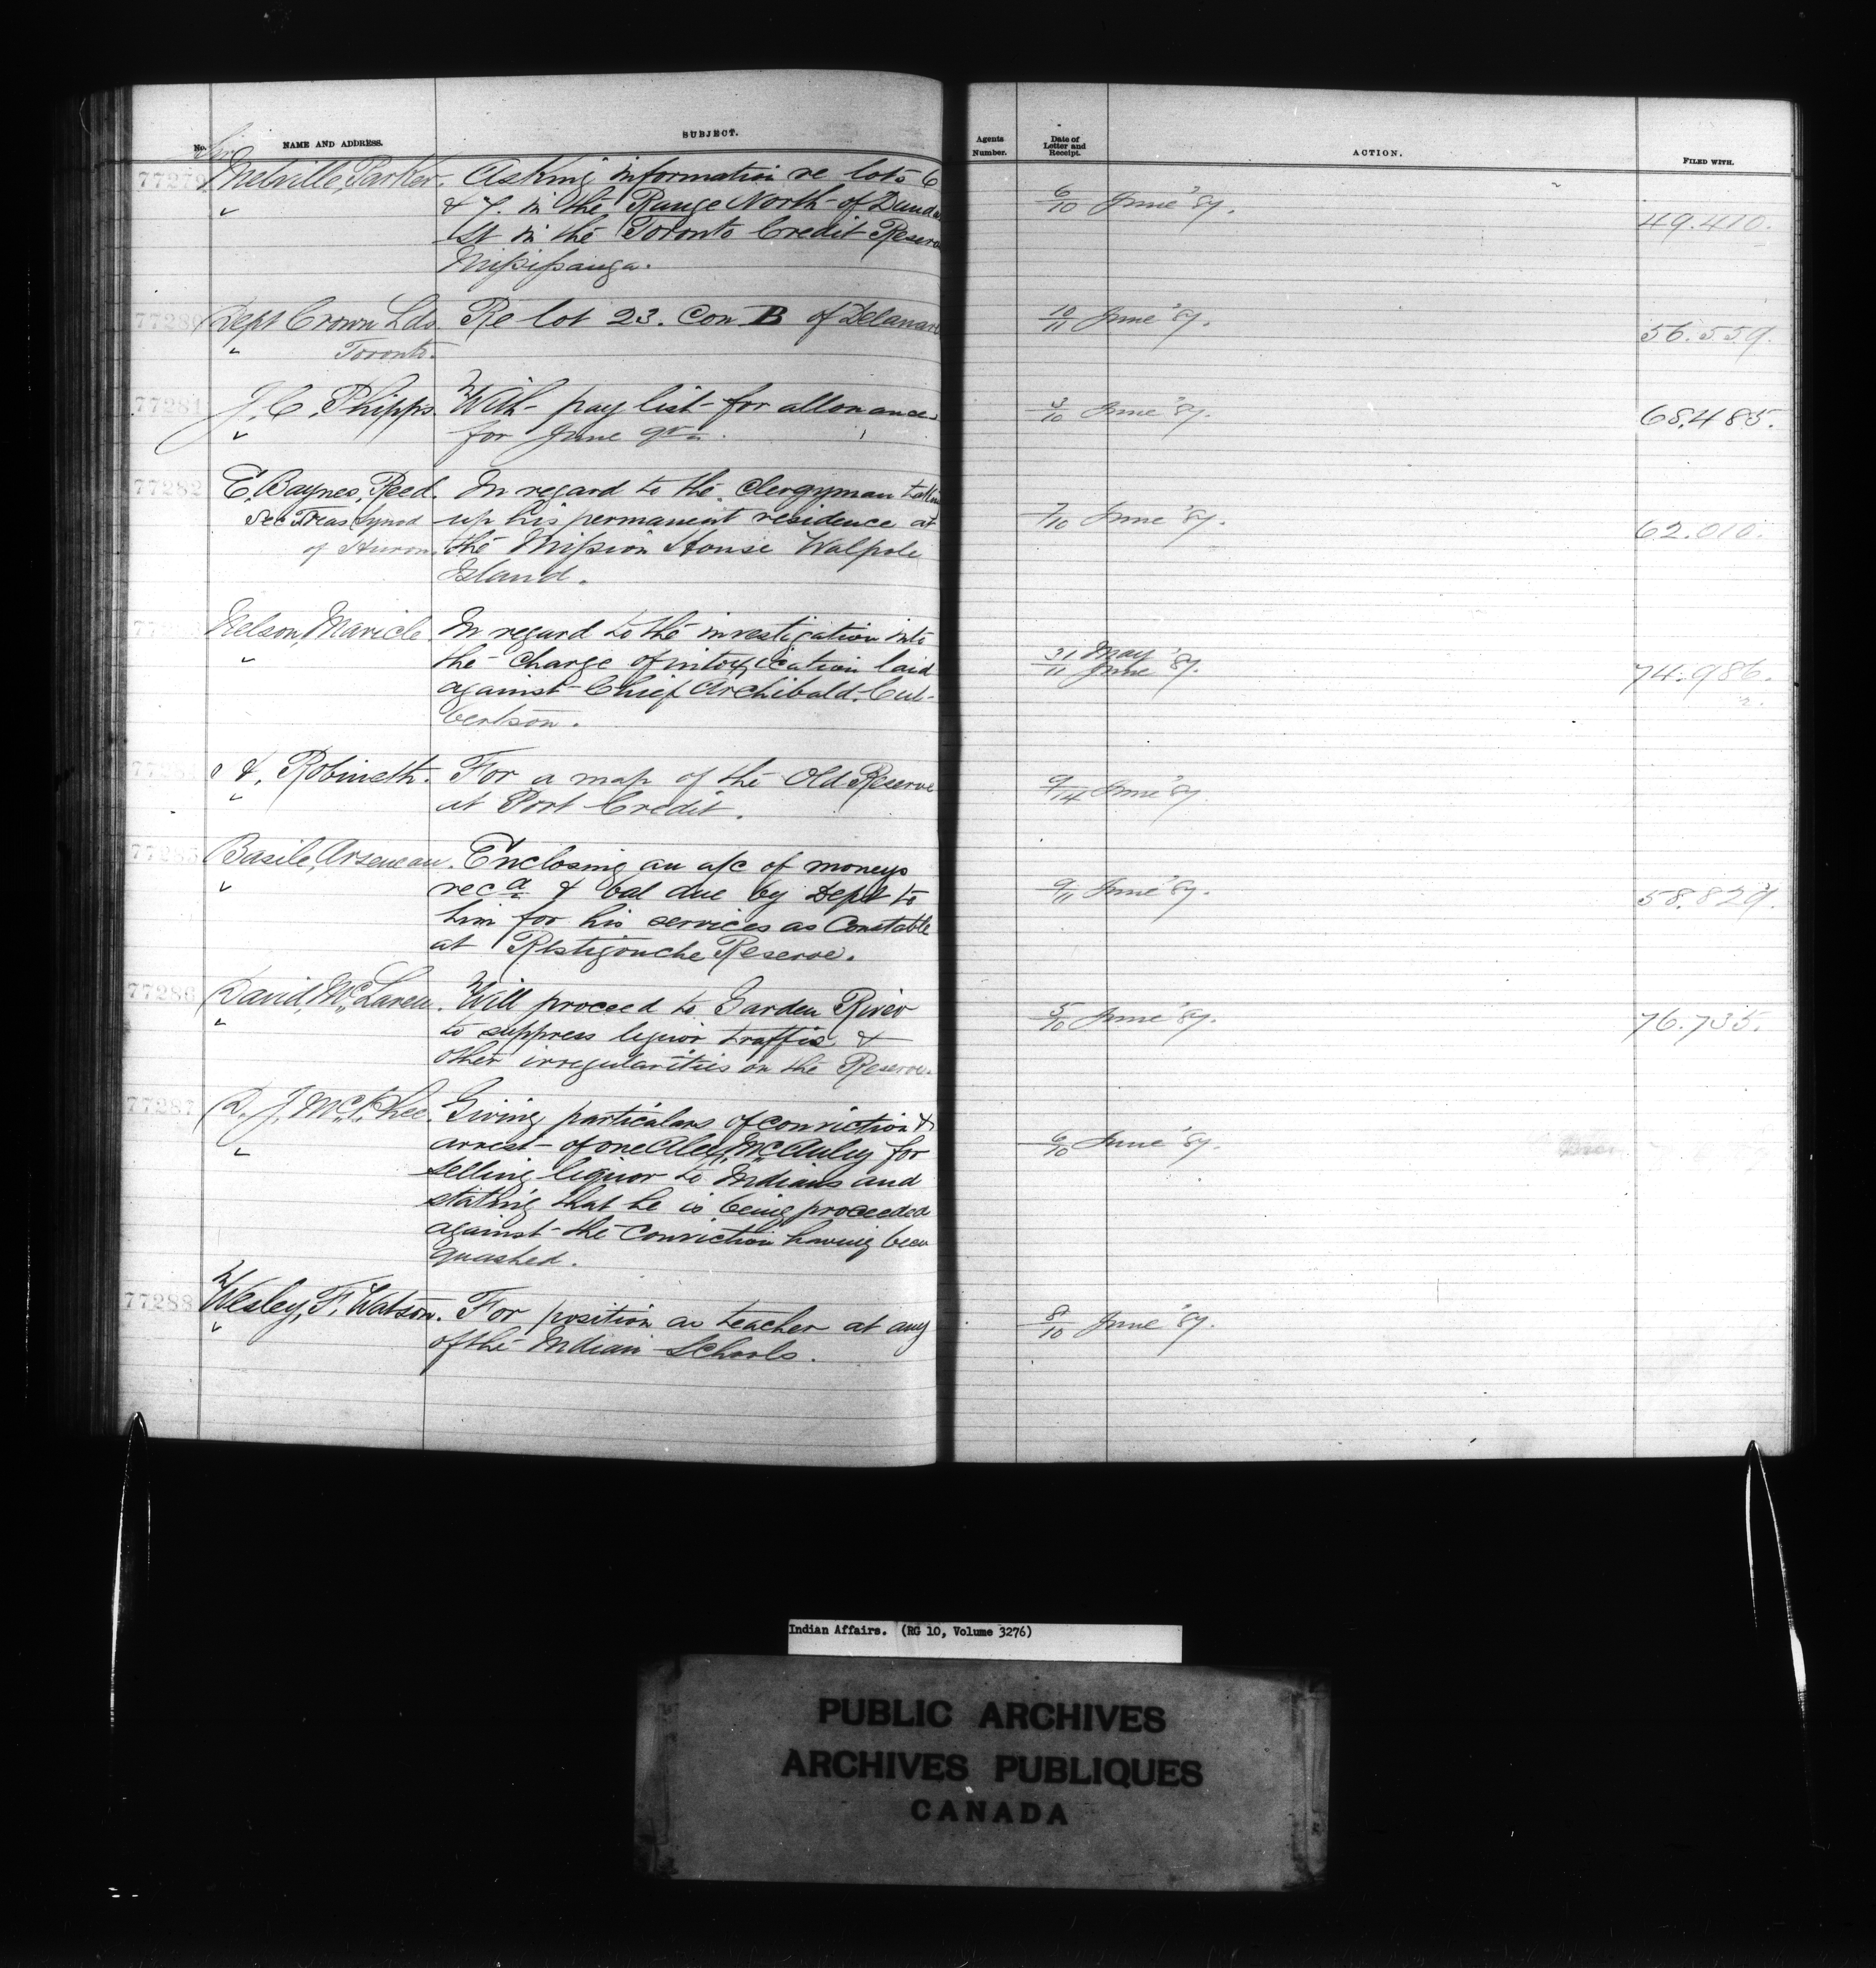 No. NAME AND ADDRESS. SUBJECT. Agents Number. Date of Letter and Receipt. ACTION. FILED WITH.
77279 Sir Melville Parker. Asking information re lots 6 6/10 June '87. 49.410.
& 7. in the Range North of Dundas
St in the Toronto Credit Reserve
Missisauga.
77280 Dept Crown Lds. Re lot 23. Con B of Delaware 10/11 June '87. 56.559.
" Toronto.
77281 J. C. Phipps. With pay list for allowances 3/10 June '87. 68.485.
" for June qr.
77282 E. Baynes Reed. In regard to the clergyman taking 7/10 June '87. 62.010.
Sec Treas Synod up his permanent residence at
of Huron. the Mission House Walpole
Island.
Nelson Maricle In regard to the investigation into 31 May / 11 June '87. 74.986.
" the charge of intoxication laid
against Chief Archibald Cul-
bertson.
Robineth. For a map of the Old Reserve 9/14 June '87
" at Port Credit.
77285 Basile Arseneau. Enclosing an a/c of moneys 9/11 June '87. 58.829.
" recd & bal due by Dept to
him for his services as Constable
at Restigouche Reserve.
77286 David McLaren. Will proceed to Garden River 5/10 June '87. 76.735.
" to suppress liquor traffic &
other irregularities on the Reserve.
77287 D. J. McPhee. Giving particulars of conviction & 6/10 June '87.
" arrest of one Alex McAuley for
selling liquor to Indians and
stating that he is being proceeded
against the conviction having been
quashed.
77288 Wesley F. Watson. For position as teacher at any 8/10 June '87.
" of the Indian Schools.
Indian Affairs. (RG 10, Volume 3276)
PUBLIC ARCHIVES
ARCHIVES PUBLIQUES
CANADA